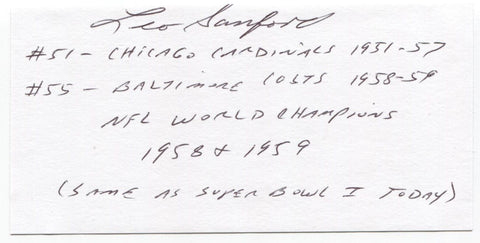 Leo Sanford
#51 - CHICAGO CARDINALS 1951-57
#55 - BALTIMORE COLTS 1958-59
NFL WORLD CHAMPIONS
1958 & 1959
(SAME AS SUPER BOWL I TODAY)